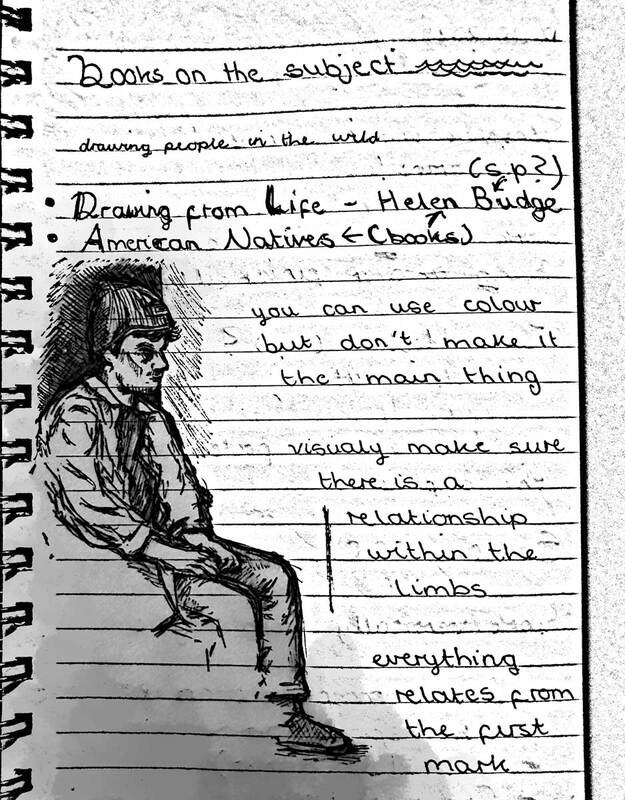 Books on the subject
drawing people in the wild
(sp?)
• Drawing from Life - Helen Budge
• American Natives ← (books)
you can use colour
but don't make it
the main thing
visualy make sure
there is a
relationship
within the
limbs
everything
relates from
the first
mark